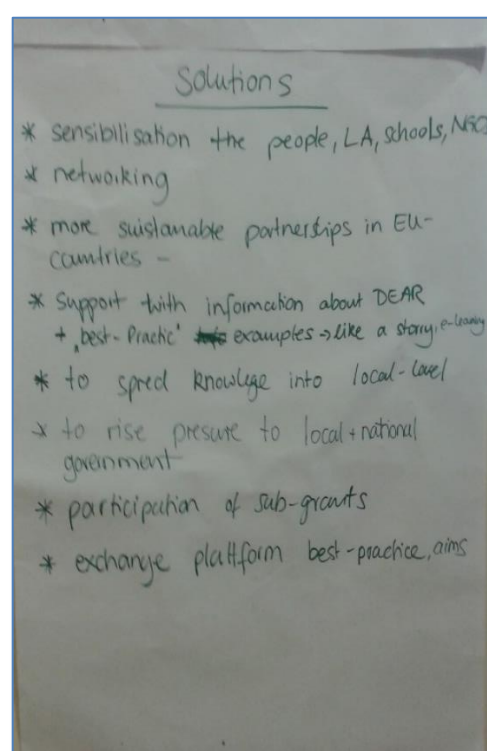 Solutions
* sensibilisation the people, LA, schools, NGO
* networking
* more suistanable partnerships in EU-
countries -
* Support with information about DEAR
+ „best-Practic' examples → like a story, e-learning
* to spred knowlege into local-level
* to rise presure to local + national
government
* participation of sub-grants
* exchange plattform best-practice, aims